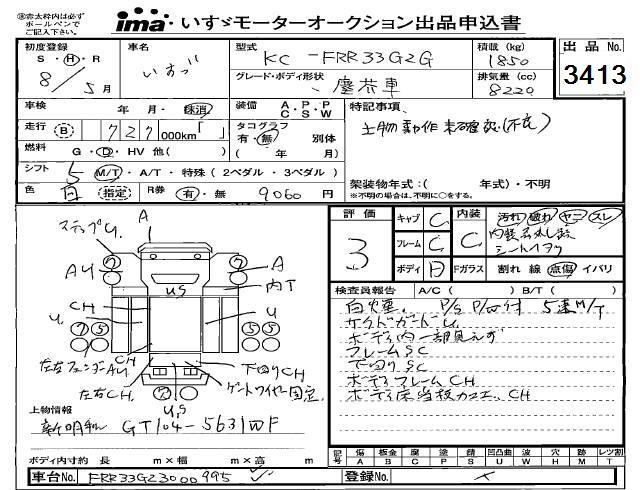 ※赤太枠内は必ず
ボールペンで
ご記入下さい。
ima® いすゞモーターオークション出品申込書
初度登録
S・H・R
8/5月
車名
いすゞ
型式
KC-FRR33G2G
グレード・ボディ形状
塵芥車
積載(kg)
1850
排気量(cc)
8220
出品No.
3413
車検 年・月・抹消
装備 A.P.P C.S.W
走行 B 727 000km「 」
タコグラフ 有・無 別体
( 年 月)
燃料 G・D・HV 他( )
シフト 5 M/T・A/T・特殊(2ペダル・3ペダル)
色 白 指定
R券 有・無 9060円
特記事項、
上物動作未確認(不良)
架装物年式:( 年式)・不明
※不明の場合は、不明に○をする。
ステップU.
A
AU
A
U,S
内T
CH
U.
U
⑦⑤
⑤⑤
左右フェンダーAU
CH
下回りCH
左右CH.
ゲートワイヤー固定
U,S
上物情報
新明和 GT104-5631WF
ボディ内寸約 長 m×幅 m×高 m
評価
3
キャブ C
フレーム C
ボディ D
内装 C
汚れ 破れ ヤニ スレ
内装
シート
Fガラス 割れ 線 点傷 イバリ
検査員報告 A/C( ) B/T( )
白煙 P/S P/W付 5速M/T
サイドガードU.
ボディ内一部見えず
フレームSC
下回りSC
ボディフレームCH
ボディ床当板加工、CH
記号 傷 板金 腐 塗 錆 凹凸曲 波 穴 跡 レツ割
A B C P S U W H M T
車台No. FRR33G23000995
登録No.